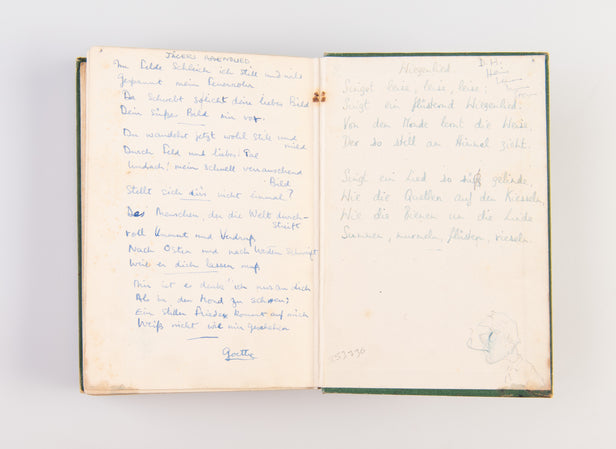 JÄGERS ABENDLIED
Im Felde Schleich ich still und wild
Gespannt mein Feuerrohr
Da Schwebt so licht dein liebes Bild
Dein süßes Bild mir vor.
Du wandelst jetzt wohl still und
mild
Durch Feld und liebes Tal
Und ach! mein schnell verrauschend
Bild
Stellt sich dir's nicht einmal?
Des Menschen, der die Welt durch-
streift
voll Unmut und Verdruß
Nach Osten und nach Westen schweift
Weil er dich lassen muß
Mir ist es denk' ich nur an dich
Als in den Mond zu sehen;
Ein stiller Friede kommt auf mich
Weiß nicht wie mir geschehen
Goethe
Wiegenlied
D. H.
Singet leise, leise, leise:
Singt ein flüsternd Wiegenlied:
Von dem Monde lernt die Weise,
Der so still am Himmel zieht.
Singt ein Lied so süß gelinde,
Wie die Quellen auf den Kieseln,
Wie die Bienen um die Linde
Summen, murmeln, flüstern, rieseln.